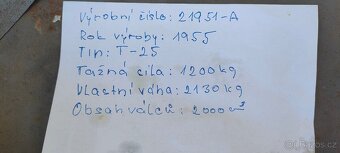 Výrobní číslo: 21951-A
Rok výroby: 1955
Tip: T-25
Tažná cíla: 1200kg
Vlastní váha: 2130 kg
Obsah válců: 2000m³